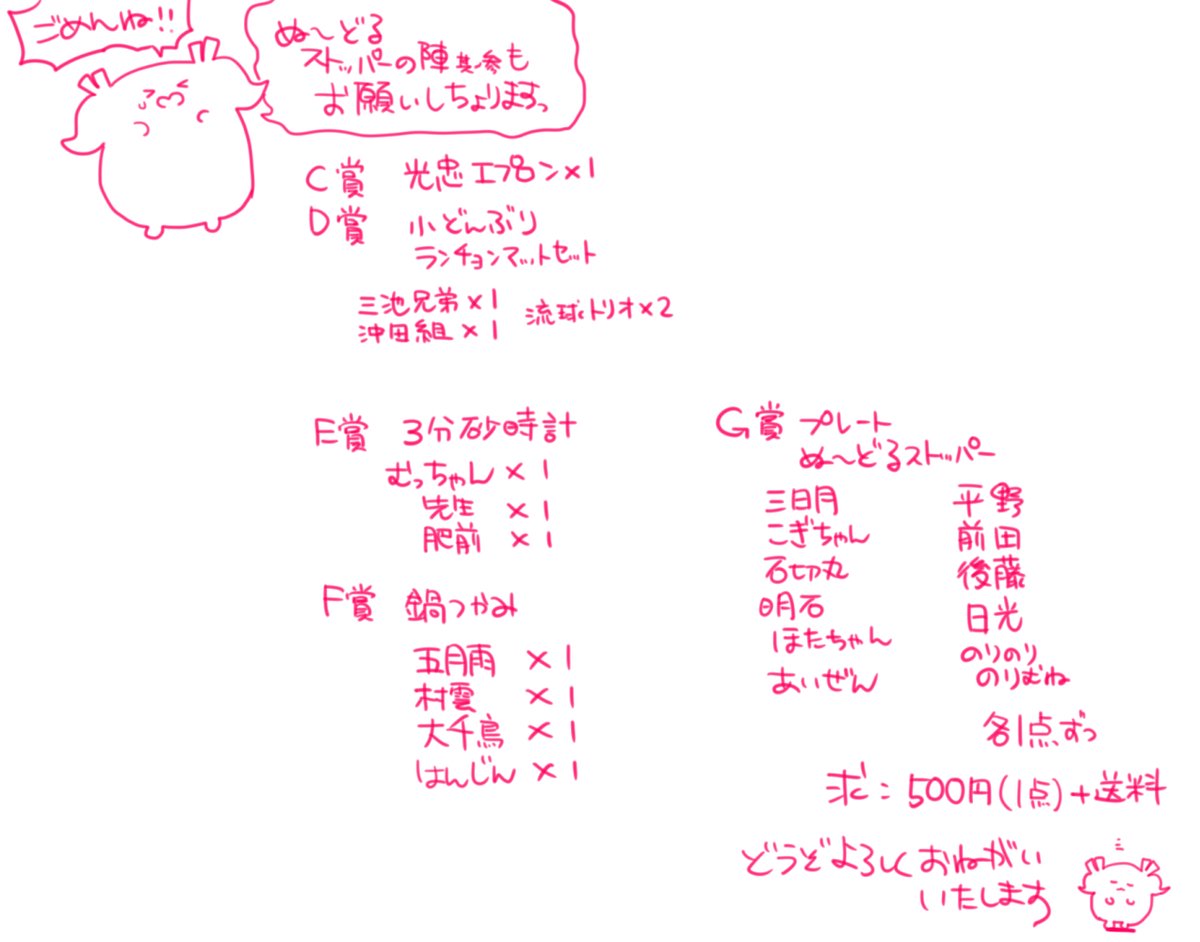 ごめんね!!
ぬ〜どる
ストッパーの陣其参も
お願いしちょりますっ
C賞 光忠エプロン×1
D賞 小どんぶり
ランチョンマットセット
三池兄弟×1
沖田組×1
流球トリオ×2
E賞 3分砂時計
むっちゃん×1
先生×1
肥前×1
F賞 鍋つかみ
五月雨×1
村雲×1
大千鳥×1
はんじん×1
G賞 プレート
ぬ〜どるストッパー
三日月
こぎちゃん
石切丸
明石
ほたちゃん
あいぜん
平野
前田
後藤
日光
のりのり
のりむね
各1点ずつ
求:500円(1点)+送料
どうぞよろしくおねがい
いたします